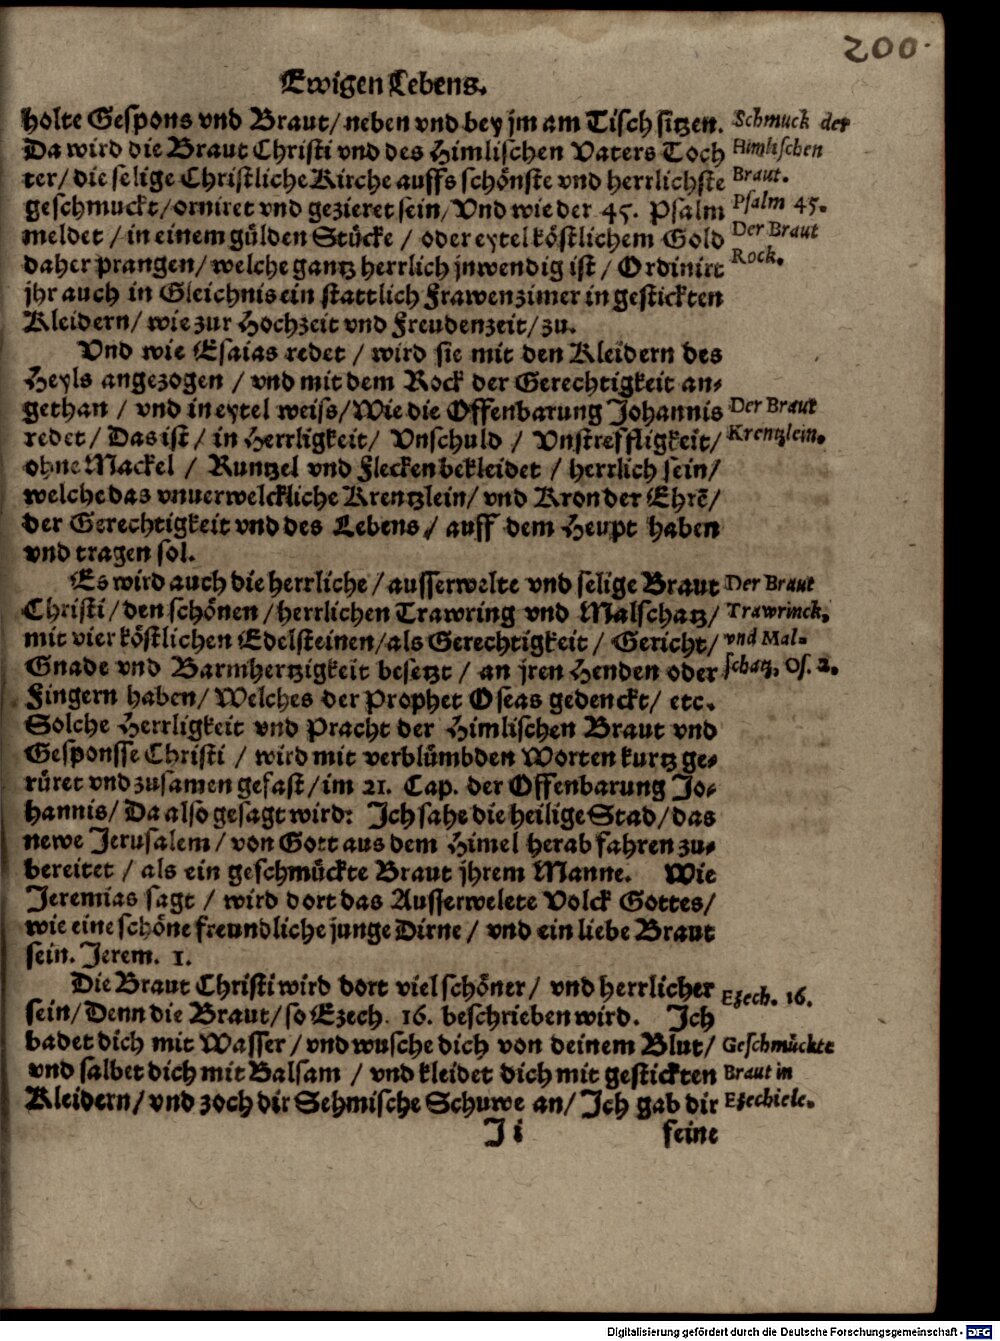 200.
Ewigen Lebens.
holte Gespons vnd Braut/ neben vnd bey jm am Tisch sitzen.
Da wird die Braut Christi vnd des Himlischen Vaters Toch
ter/ die selige Christliche Kirche auffs schönste vnd herrlichste
geschmuckt/ orniret vnd gezieret sein/ Vnd wie der 45. Psalm
meldet / in einem gülden Stücke / oder eytel köstlichem Gold
daher prangen/ welche gantz herrlich jnwendig ist / Ordinirt
jhr auch in Gleichnis ein stattlich Frawenzimer in gestickten
Kleidern/ wie zur Hochzeit vnd Freudenzeit/ zu.
Schmuck der
Himlischen
Braut.
Psalm 45.
Der Braut
Rock.
Vnd wie Esaias redet / wird sie mit den Kleidern des
Heyls angezogen / vnd mit dem Rock der Gerechtigkeit an-
gethan / vnd in eytel weiss/ Wie die Offenbarung Johannis
redet/ Das ist / in Herrligkeit/ Vnschuld / Vnstreffligkeit/
ohne Mackel / Runtzel vnd Flecken bekleidet / herrlich sein/
welche das vnuerwelckliche Krentzlein/ vnd Kron der Ehrē/
der Gerechtigkeit vnd des Lebens / auff dem Heupt haben
vnd tragen sol.
Der Braut
Krentzlein.
Es wird auch die herrliche / ausserwelte vnd selige Braut
Christi / den schönen / herrlichen Trawring vnd Malschatz/
mit vier köstlichen Edelsteinen/ als Gerechtigkeit / Gericht/
Gnade vnd Barmhertzigkeit besetzt / an jren Henden oder
Fingern haben/ Welches der Prophet Oseas gedenckt/ etc.
Solche Herrligkeit vnd Pracht der Himlischen Braut vnd
Gesponsse Christi / wird mit verblümbden Worten kurtz ge-
rüret vnd zusamen gefast / im 21. Cap. der Offenbarung Jo-
hannis/ Da also gesagt wird: Ich sahe die heilige Stad/ das
newe Jerusalem / von Gott aus dem Himel herab fahren zu-
bereitet / als ein geschmückte Braut jhrem Manne. Wie
Jeremias sagt / wird dort das Ausserwelete Volck Gottes/
wie eine schöne freundliche junge Dirne / vnd ein liebe Braut
sein. Jerem. 1.
Der Braut
Trawrinck,
vnd Mal-
schatz. Os. 2.
Die Braut Christi wird dort viel schöner / vnd herrlicher
sein/ Denn die Braut/ so Ezech. 16. beschrieben wird. Ich
badet dich mit Wasser / vnd wusche dich von deinem Blut/
vnd salbet dich mit Balsam / vnd kleidet dich mit gestickten
Kleidern/ vnd zoch dir Sehmische Schuwe an/ Ich gab dir
Ezech. 16.
Geschmückte
Braut in
Ezechiele.
J i
feine
Digitalisierung gefördert durch die Deutsche Forschungsgemeinschaft - DFG